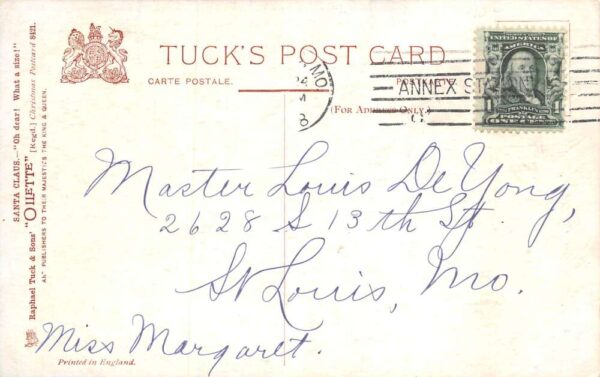 TUCK'S POST CARD
CARTE POSTALE.
(FOR ADDRESS ONLY.)
MO.
ANNEX
UNITED STATES OF AMERICA
FRANKLIN
1 1
POSTAGE
ONE CENT
SANTA CLAUS.—"Oh dear! What a size!"
"OILETTE" [Regd.] Christmas Postcard 8421.
Raphael Tuck & Sons'
ART PUBLISHERS TO THEIR MAJESTIES THE KING & QUEEN.
Master Louis De Yong,
2628 S 13th St.
St Louis, Mo.
Miss Margaret.
Printed in England.